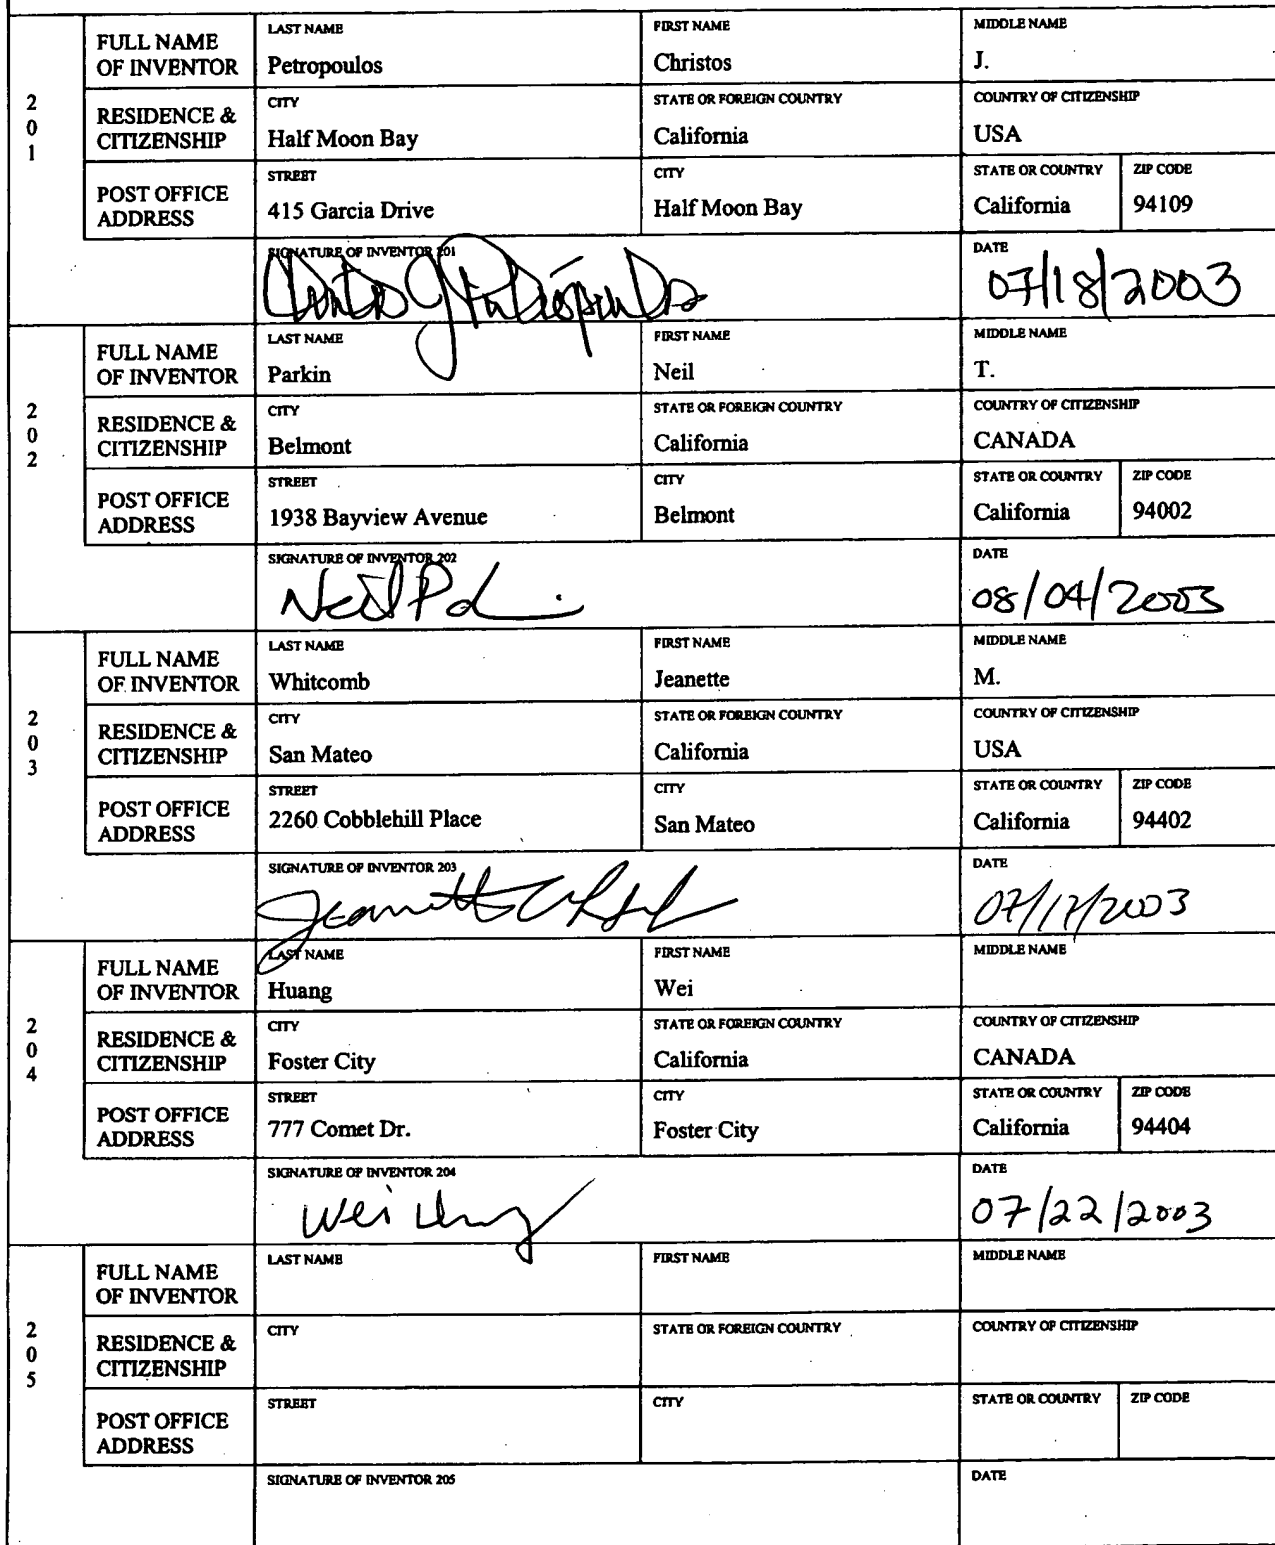 201
FULL NAME OF INVENTOR
LAST NAME
Petropoulos
FIRST NAME
Christos
MIDDLE NAME
J.
RESIDENCE & CITIZENSHIP
CITY
Half Moon Bay
STATE OR FOREIGN COUNTRY
California
COUNTRY OF CITIZENSHIP
USA
POST OFFICE ADDRESS
STREET
415 Garcia Drive
CITY
Half Moon Bay
STATE OR COUNTRY
California
ZIP CODE
94109
SIGNATURE OF INVENTOR 201
Christos J Petropoulos
DATE
07/18/2003
202
FULL NAME OF INVENTOR
LAST NAME
Parkin
FIRST NAME
Neil
MIDDLE NAME
T.
RESIDENCE & CITIZENSHIP
CITY
Belmont
STATE OR FOREIGN COUNTRY
California
COUNTRY OF CITIZENSHIP
CANADA
POST OFFICE ADDRESS
STREET
1938 Bayview Avenue
CITY
Belmont
STATE OR COUNTRY
California
ZIP CODE
94002
SIGNATURE OF INVENTOR 202
Neil
DATE
08/04/2003
203
FULL NAME OF INVENTOR
LAST NAME
Whitcomb
FIRST NAME
Jeanette
MIDDLE NAME
M.
RESIDENCE & CITIZENSHIP
CITY
San Mateo
STATE OR FOREIGN COUNTRY
California
COUNTRY OF CITIZENSHIP
USA
POST OFFICE ADDRESS
STREET
2260 Cobblehill Place
CITY
San Mateo
STATE OR COUNTRY
California
ZIP CODE
94402
SIGNATURE OF INVENTOR 203
Jeanette
DATE
07/17/2003
204
FULL NAME OF INVENTOR
LAST NAME
Huang
FIRST NAME
Wei
MIDDLE NAME
RESIDENCE & CITIZENSHIP
CITY
Foster City
STATE OR FOREIGN COUNTRY
California
COUNTRY OF CITIZENSHIP
CANADA
POST OFFICE ADDRESS
STREET
777 Comet Dr.
CITY
Foster City
STATE OR COUNTRY
California
ZIP CODE
94404
SIGNATURE OF INVENTOR 204
Wei Huang
DATE
07/22/2003
205
FULL NAME OF INVENTOR
LAST NAME
FIRST NAME
MIDDLE NAME
RESIDENCE & CITIZENSHIP
CITY
STATE OR FOREIGN COUNTRY
COUNTRY OF CITIZENSHIP
POST OFFICE ADDRESS
STREET
CITY
STATE OR COUNTRY
ZIP CODE
SIGNATURE OF INVENTOR 205
DATE